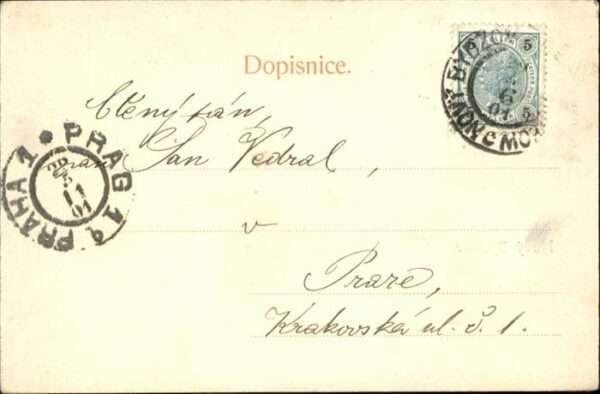 Dopisnice.
5 5
5
Ctěný pán,
pan Jan Vedral,
v
Praze,
Krakovská ul. č. 1.
PRAG 1
PRAHA 1
11
01